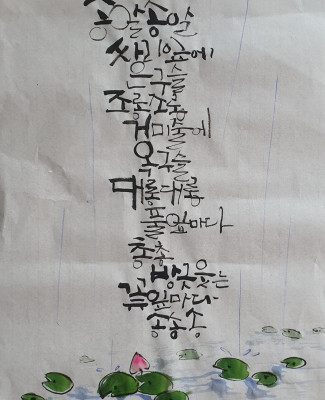 송알송알
싸리잎에
은구슬
조롱조롱
거미줄에
옥구슬
대롱대롱
풀잎마다
총총
방긋웃는
꽃잎마다
송송송